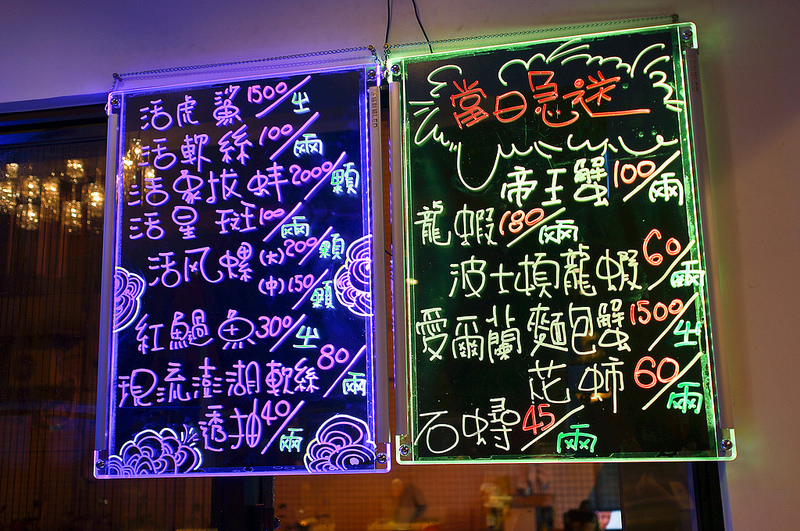 活虎鯊1500/出
活軟絲100/兩
活象拔蚌2000/顆
活星斑100/兩
活风螺(大)200/顆
(中)150/顆
紅鰮魚30/出
現流澎湖軟絲80/兩
透抽40/兩
當日急送
帝王蟹100/兩
龍蝦180/兩
波士頓龍蝦60/兩
愛爾蘭麵包蟹1500/出
花蛳60/兩
石蟳45/兩